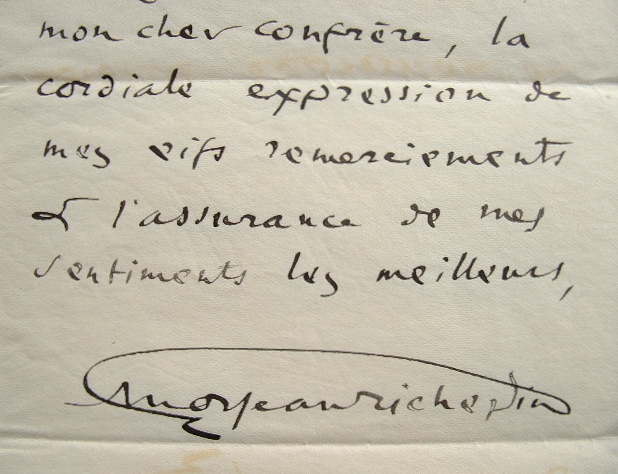 mon cher confrère, la
cordiale expression de
mes vifs remerciements
& l'assurance de mes
sentiments les meilleurs,
Jean Richepin